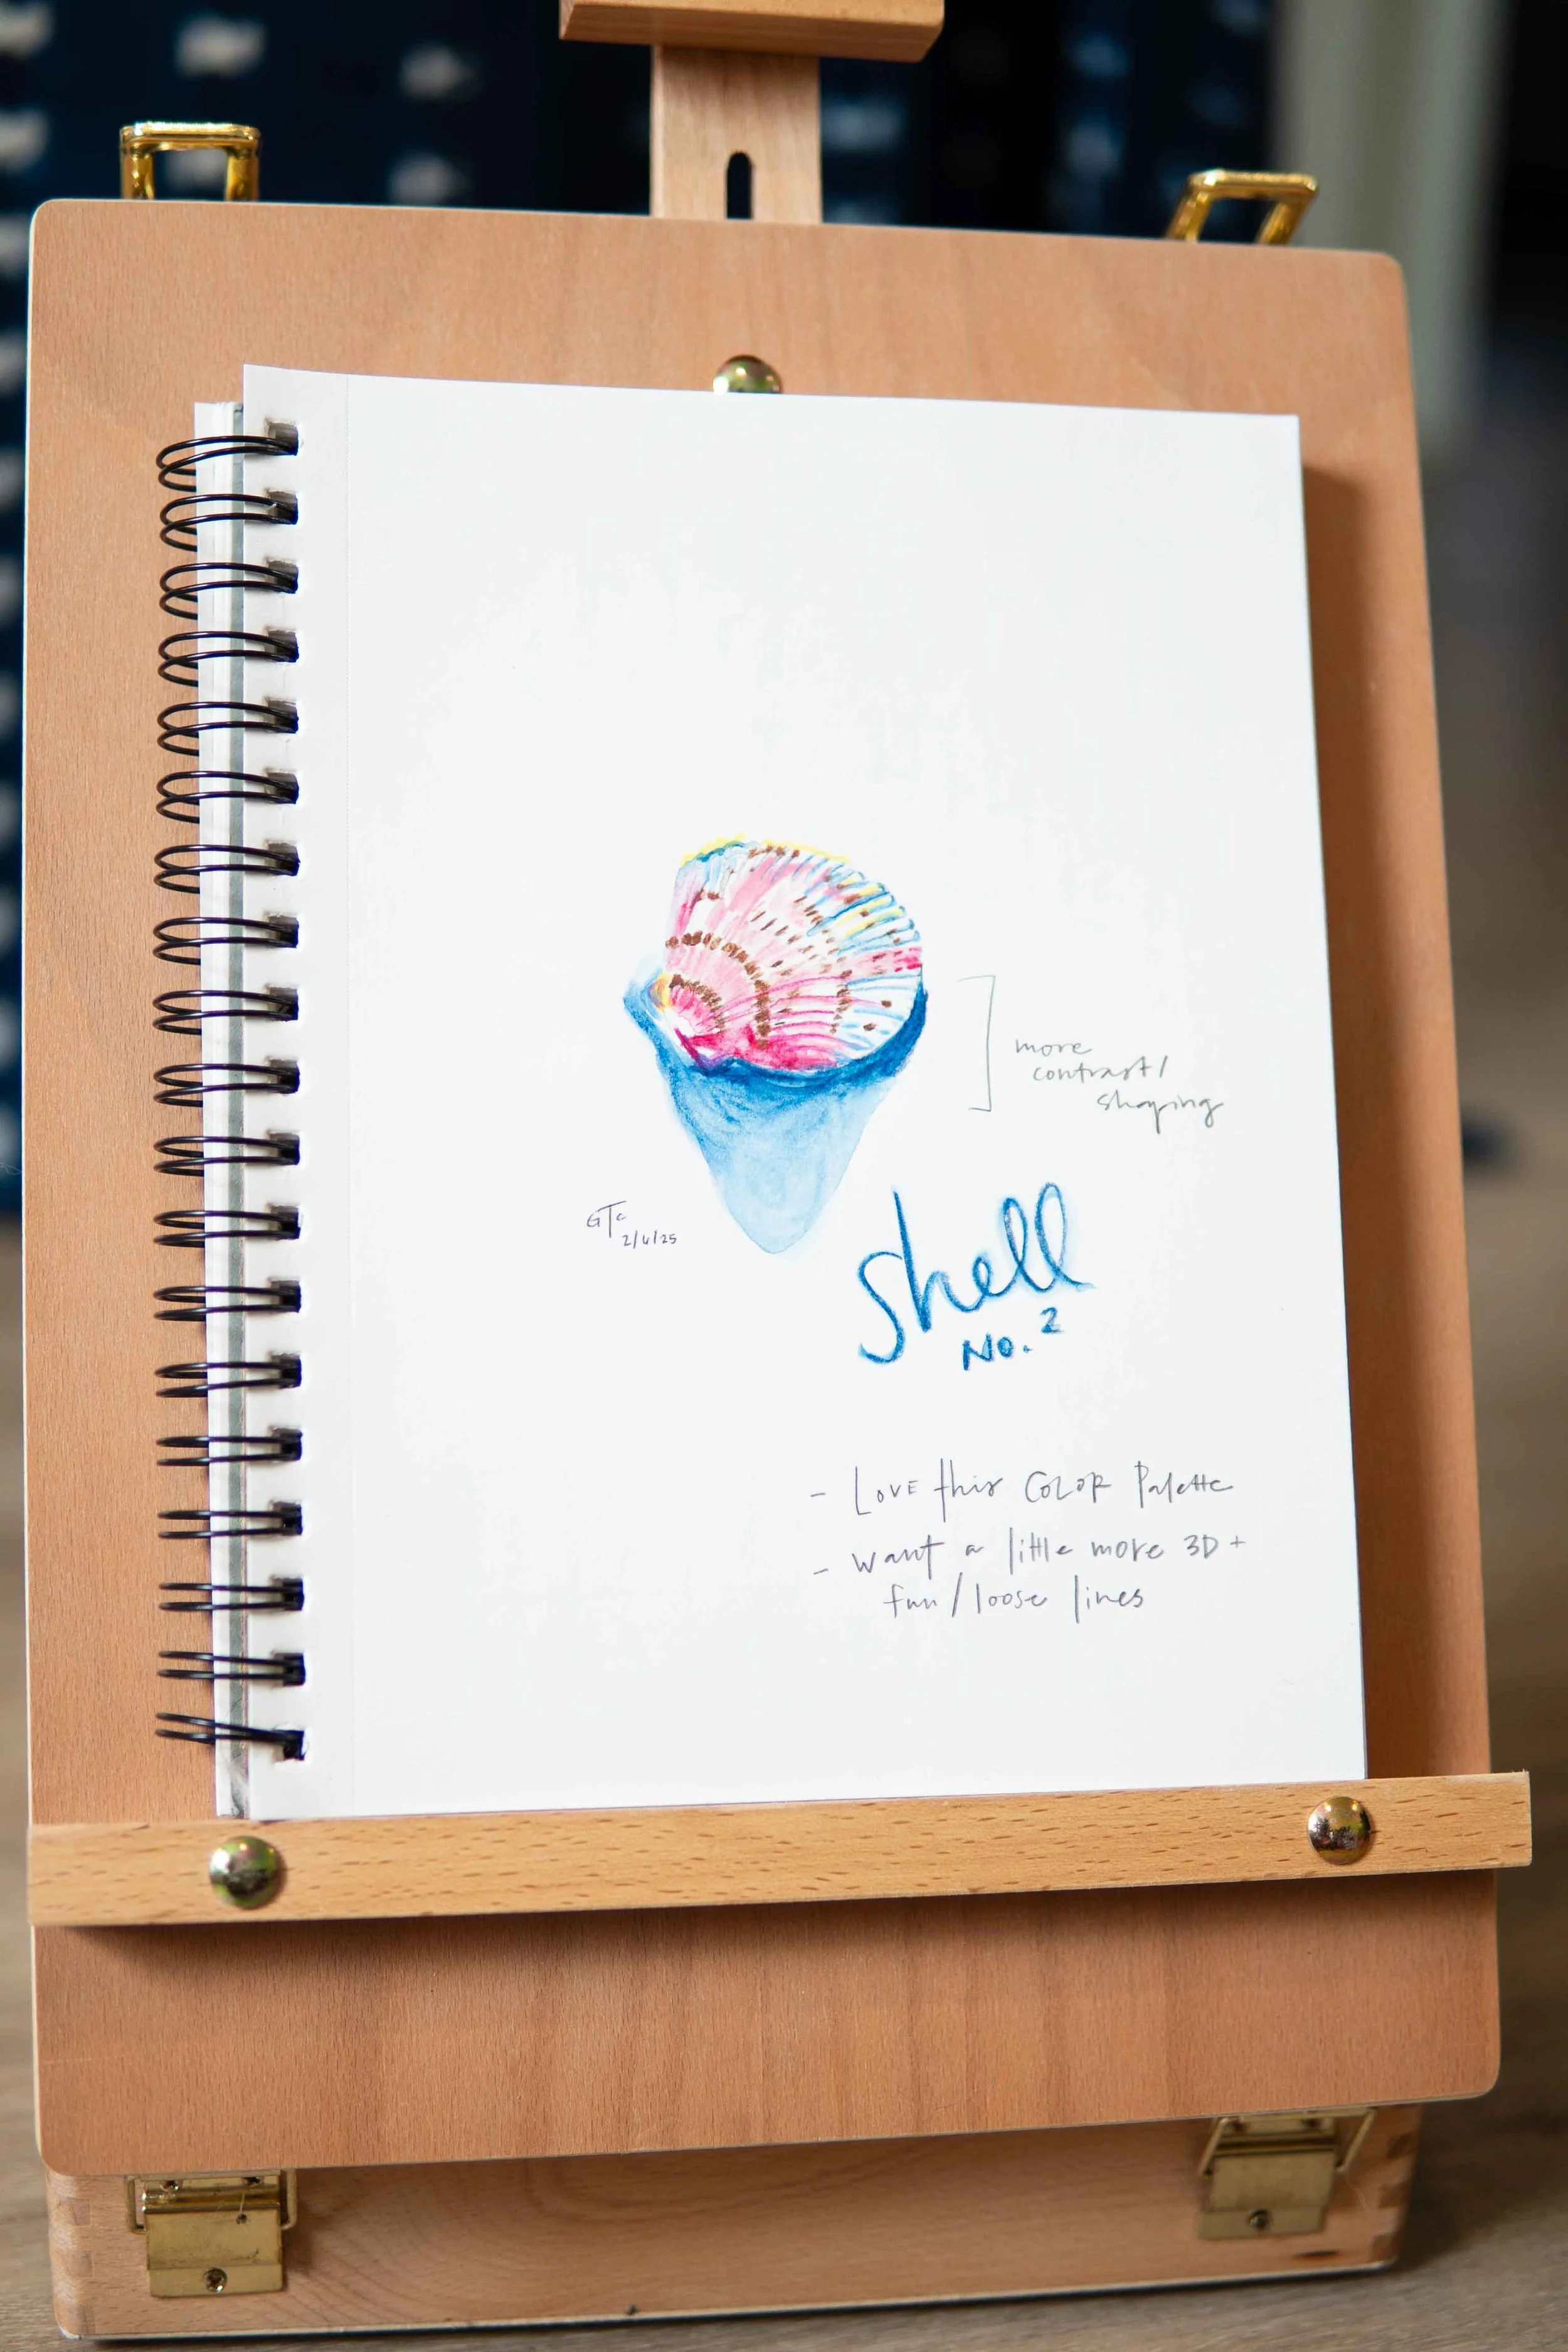 more
contrast/
shaping
GTC
2/6/25
Shell
No. 2
- LOVE this COLOR Palette
- want a little more 3D +
fun/loose lines